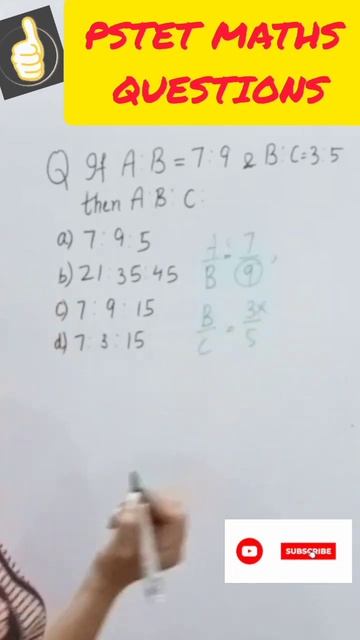 PSTET MATHS
QUESTIONS
Q If A:B=7:9 & B:C=3:5
then A:B:C:
a) 7:9:5
b) 21:35:45
c) 7:9:15
d) 7:3:15
A/B = 7/9,
B/C = 3x/5
SUBSCRIBE